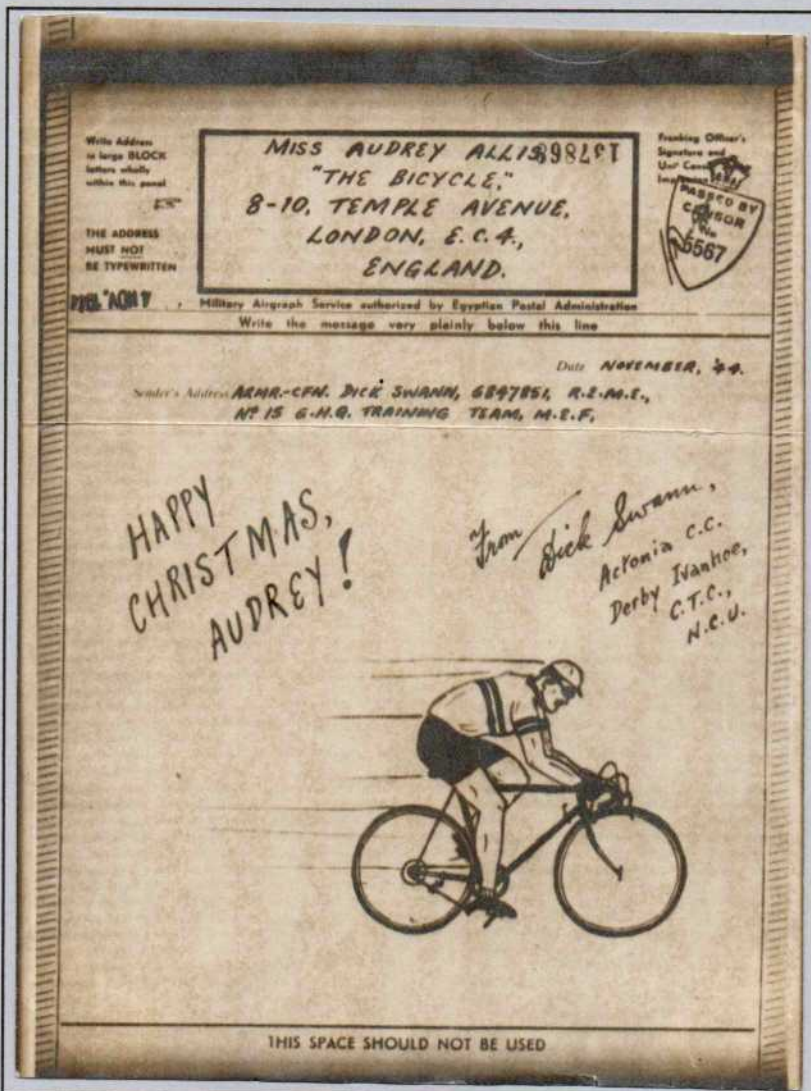 Write Address
in large BLOCK
letters wholly
within this panel
THE ADDRESS
MUST NOT
BE TYPEWRITTEN
MISS AUDREY ALLIS
137868
"THE BICYCLE,"
8-10, TEMPLE AVENUE,
LONDON, E.C.4.,
ENGLAND.
Franking Officer's
Signature and
Unit
PASSED BY
CENSOR
No
5567
Military Airgraph Service authorized by Egyptian Postal Administration
Write the message very plainly below this line
Date NOVEMBER, '44.
Sender's Address ARMR.-CFN. DICK SWANN, 6847851, R.E.M.E.,
No 15 G.H.Q. TRAINING TEAM, M.E.F,
HAPPY
CHRISTMAS,
AUDREY!
From Dick Swann,
Actonia C.C.
Derby Ivanhoe,
C.T.C.,
N.C.U.
THIS SPACE SHOULD NOT BE USED